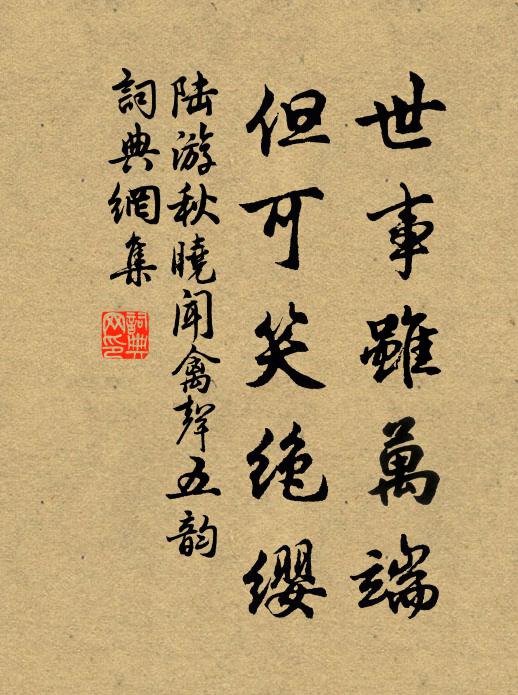 世事雖萬端
但可笑絶纓
陆游秋曉聞禽聲五韵
詞典網集
詞典网印